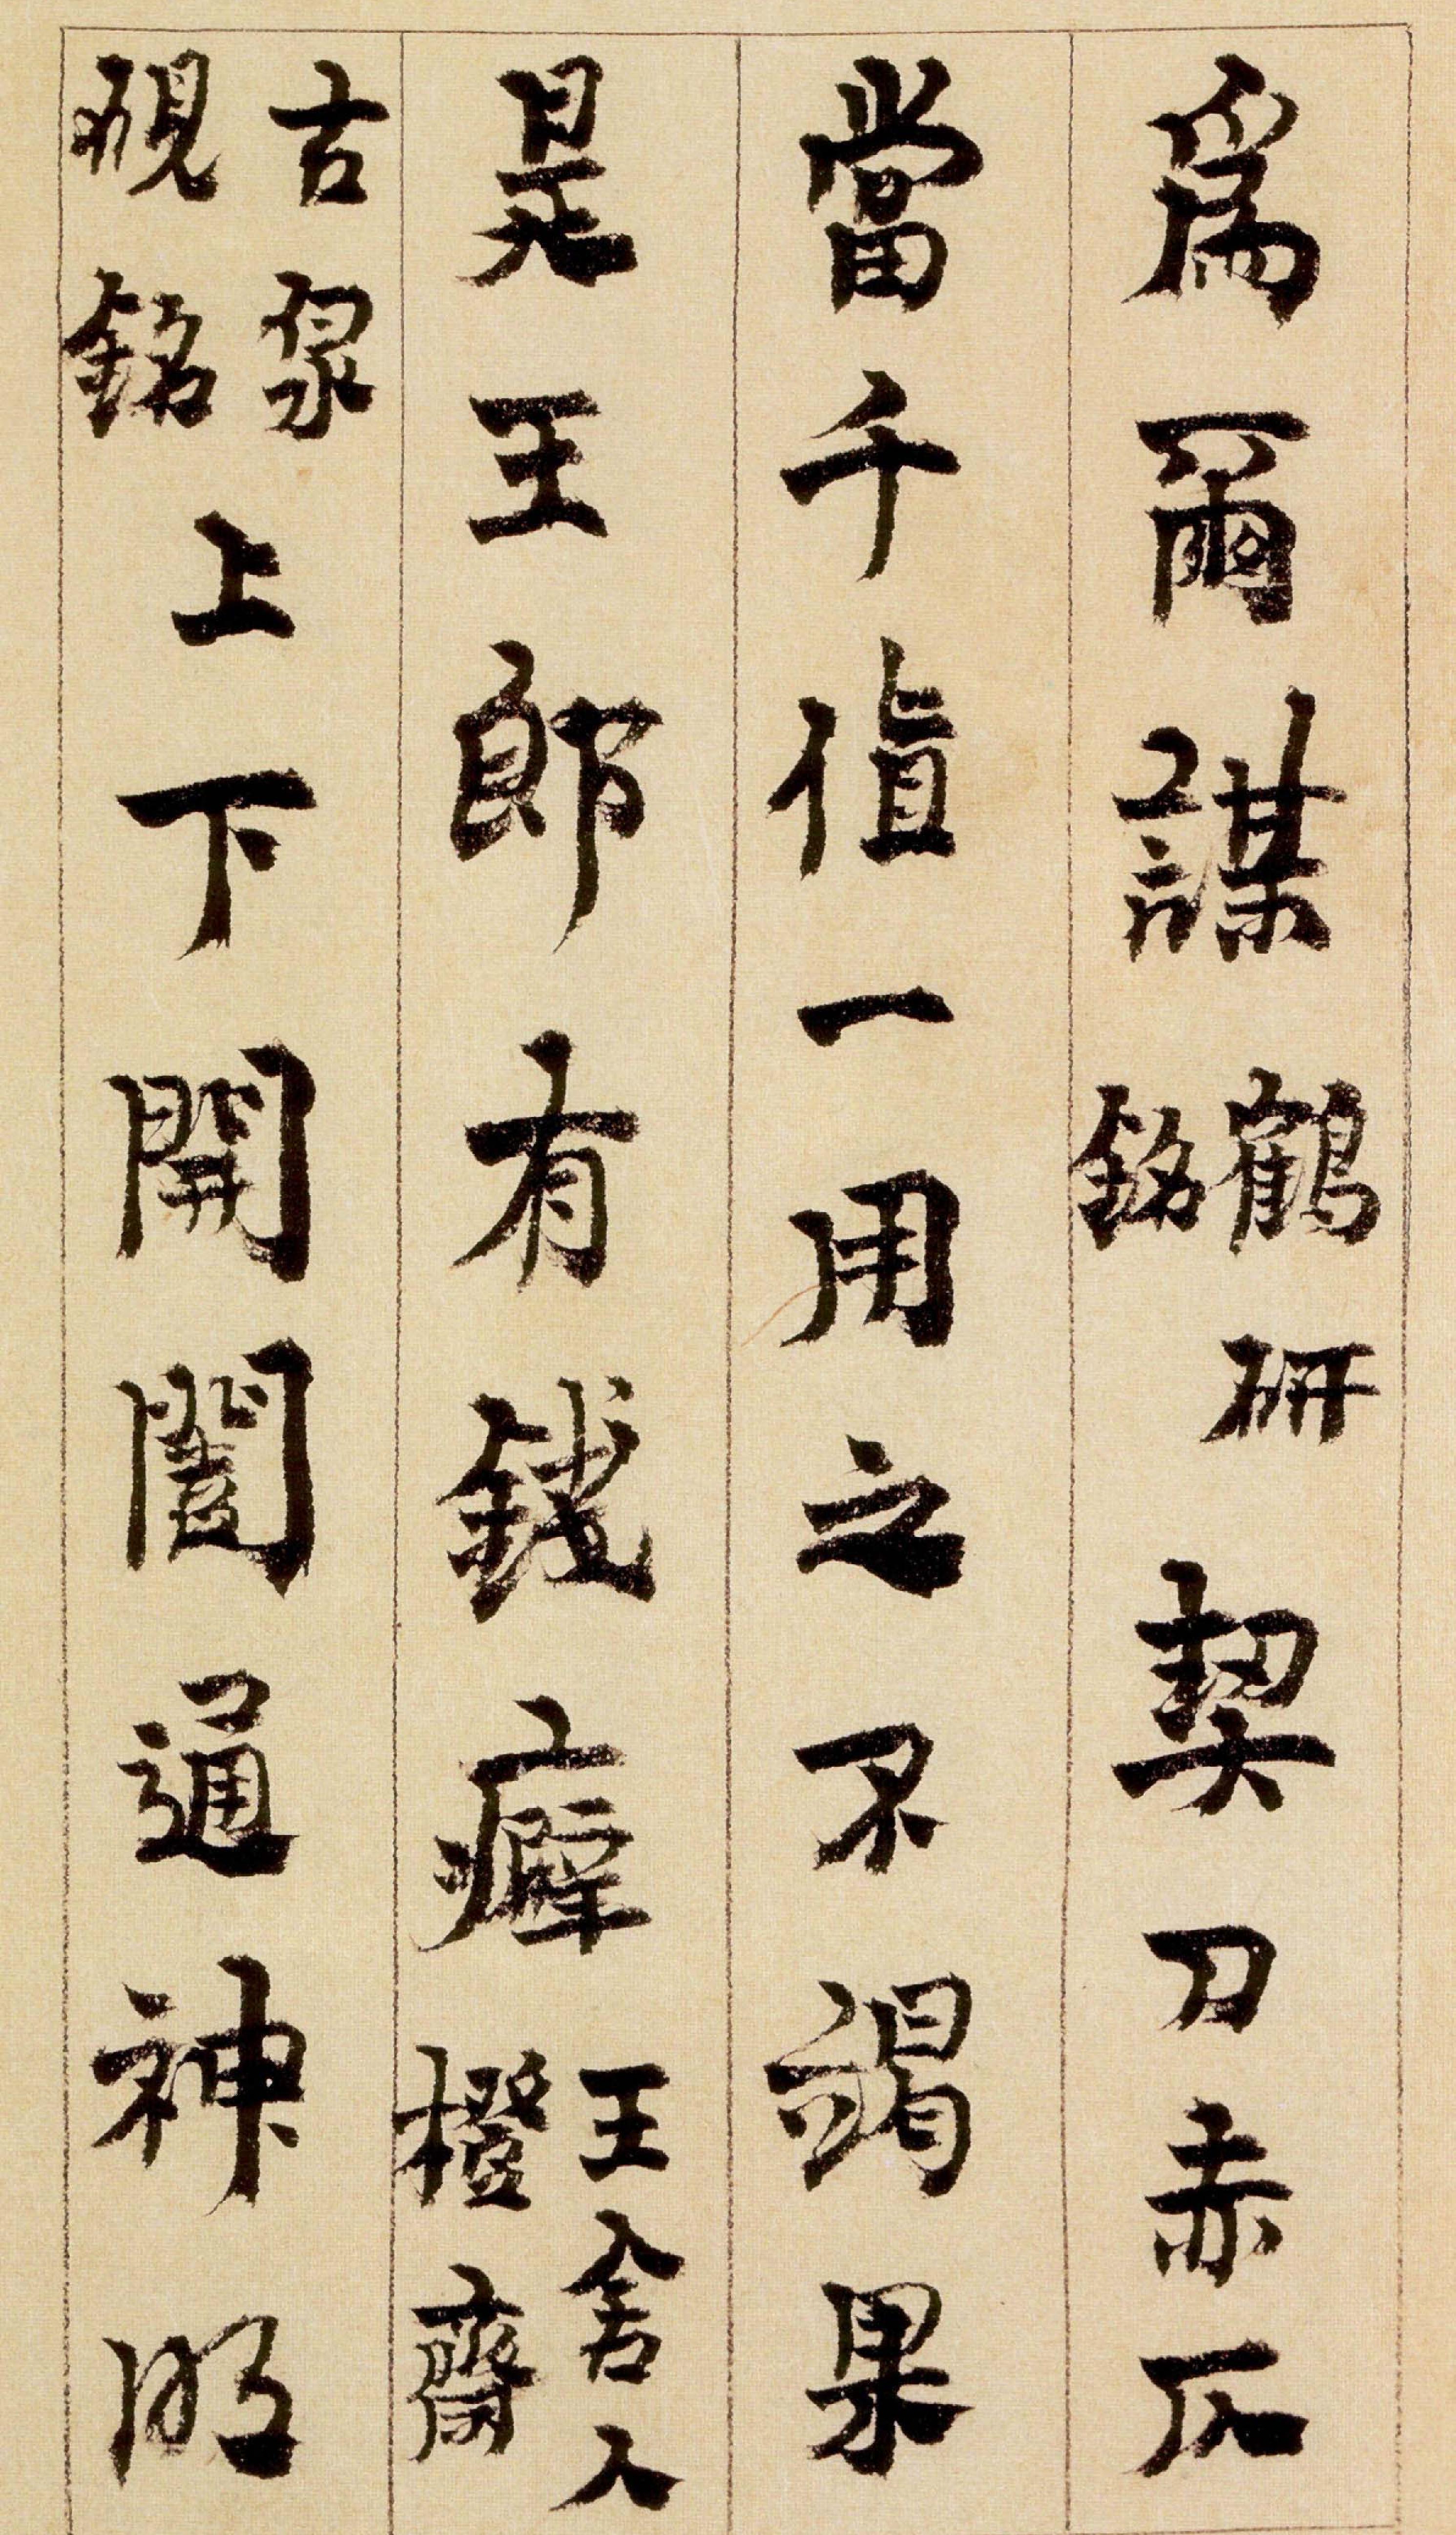 為爾謀鶴研銘契刀赤仄
當千值一用之不竭果
是王郎有錢癖王舍人橙齋
古泉硯銘上下開闔通神明